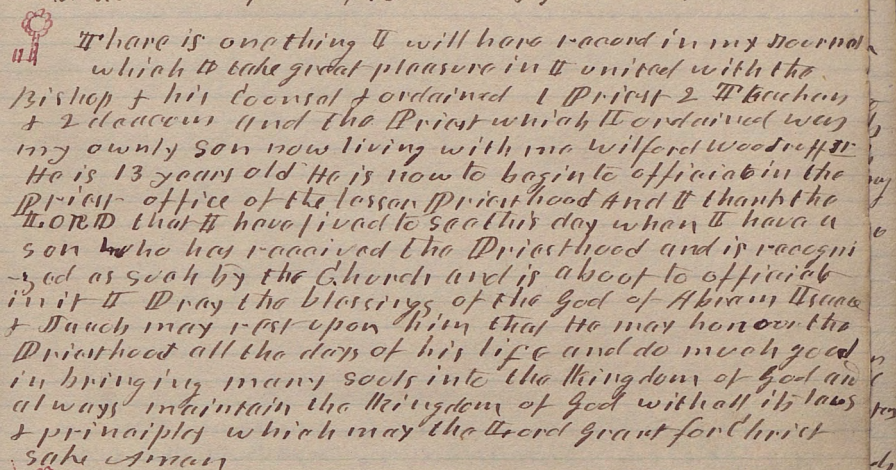 There is one thing I will here record in my Journal
which I take great pleasure in I united with the
Bishop & his Counsel & ordained 1 Priest 2 Teachers
& 2 deacons and the Priest which I ordained was
my ownly son now living with me Wilford Woodruff Jr
He is 13 years old He is now to begin to officiate in the
Priest office of the lesser Priesthood And I thank the
LORD that I have lived to see this day when I have a
son who has received the Priesthood and is recogni
zed as such by the Church and is about to officiate
in it I Pray the blessings of the God of Abram Isaac
& Jacob may rest upon him that He may honor the
Priesthood all the days of his life and do much good
in bringing many souls into the Kingdom of God and
always maintain the Kingdom of God with all its laws
& principles which may the Lord grant for Christ
sake Amen